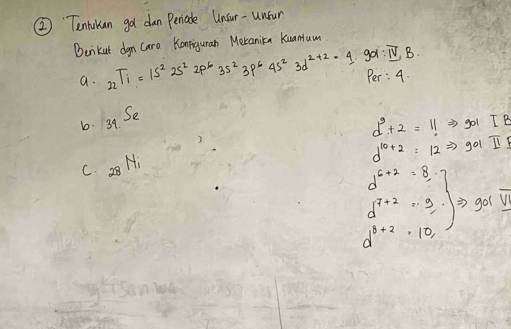 ② Tentukan gol dan Periode Unsur - Unsur
Berikut dgn Cara Konfigurasi Mekanika Kuantum.
a. ₂₂Ti = 1S² 2S² 2p⁶ 3S² 3p⁶ 4S² 3d²⁺² = 4. gol : IV B.
Per : 4.
b. ₃₄Se
C. ₂₈Ni
d⁹ + 2 = 11 ⇒ gol I B
d¹⁰⁺² = 12 ⇒ gol II B
d⁶⁺² = 8
d⁷⁺² = 9 ⇒ gol VI
d⁸⁺² = 10